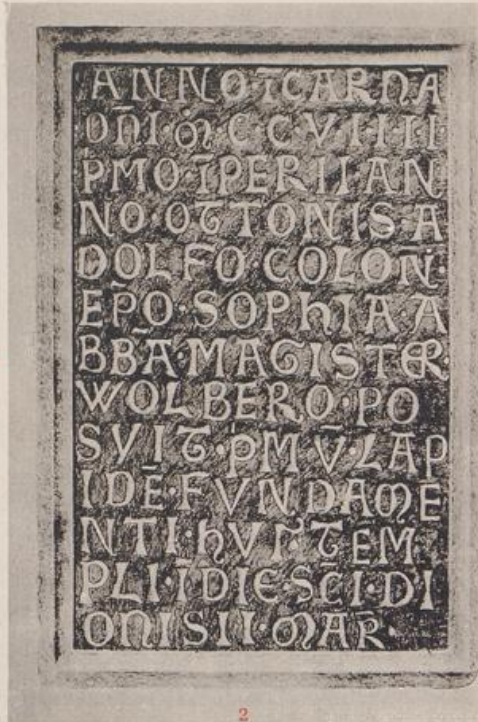 ANNO·ĪCARNA
ON̄I·M̄·C·C·VIIII
PMO·ĪPERII AN
NO·OTTONIS A
DOLFO·COLON̄·
EP̄O·SOPHIA·A
BBA·MAGISTER·
WOLBERO·PO
SVIT·PM̄V̄·LAP
IDĒ·FVNDAME
NTI·hVI·TEM
PLI·Ī DIE SC̄I·DI
ONISII·MAR̄
2